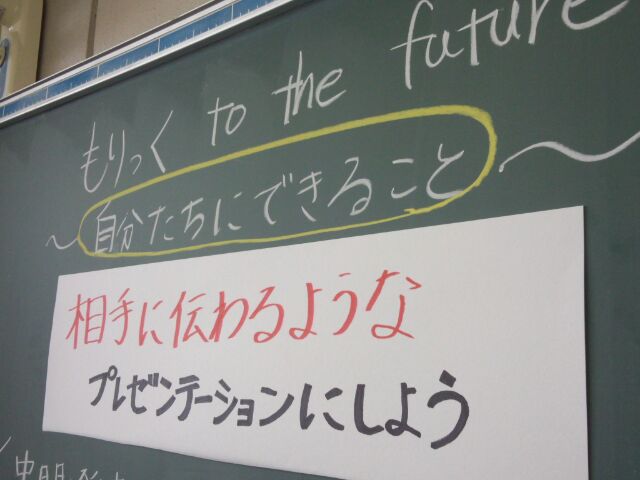 もりっく to the future
～自分たちにできること～
相手に伝わるような
プレゼンテーションにしよう